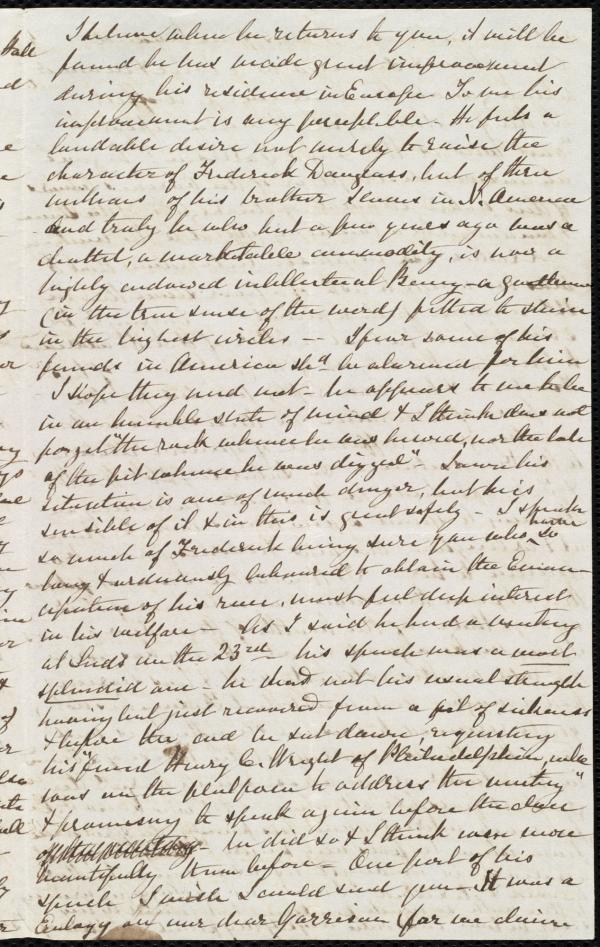 I believe when he returns to you, it will be
found he has made great improvement
during his residence in Europe To me his
improvement is very perceptible - He feels a
laudable desire not merely to raise the
character of Frederick Douglass, but of three
millions of his brother slaves in N. America
and truly he who but a few years ago was a
chattel, a marketable commodity, is now a
highly endowed intellectual Being - a gentleman
(in the true sense of the word) fitted to shine
in the highest circles -- I fear some of his
friends in America shd. be alarmed for him
I hope they need not - he appears to me to be
in an humble state of mind & I think does not
forget "the rock whence he was hewed, nor the hole
of the pit whence he was digged" - I own his
situation is one of much danger, but he is
sensible of it & in this is great safety - I speak
so much of Frederick being sure you who have so
long & arduously laboured to obtain the Eman-
cipation of his race, must feel deep interest
in his welfare - As I said he had a meeting
at Leeds on the 23rd - his speech was a most
splendid one - he had not his usual strength
having but just recovered from a fit of sickness
& before the end he sat down, requesting
his "friend Henry C. Wright of Philadelphia, who
was on the platform to address the meeting"
& promising to speak again before the close
- he did so & I think were more
beautifully than before - One part of his
speech I wish I could send you - It was a
Eulogy on our dear Garrison (for we claim